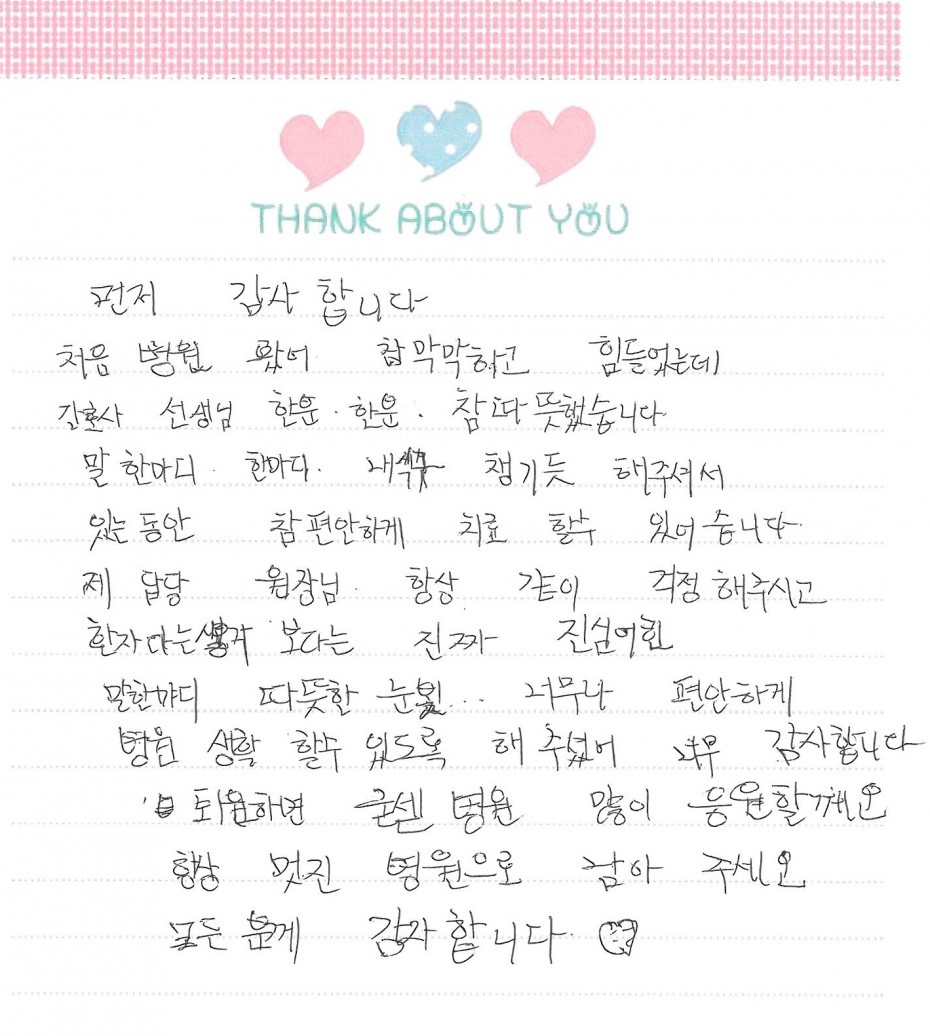 THANK ABOUT YOU
먼저 감사합니다
처음 병원 왔어 참 막막하고 힘들었는데
간호사 선생님 한분·한분· 참 따뜻했습니다
말 한마디· 한마디· 내식구 챙기듯 해주셔서
있는동안 참편안하게 치료 할수 있어습니다
제 답당 원장님· 항상 같이 걱정 해주시고
환자라는생각 보다는 진짜 진심어린
말한마디 따뜻한 눈빛... 너무나 편안하게
병원 생활 할수 있도록 해 주셨어 너무 감사합니다
퇴원하면 굳센 병원 많이 응원할께요
항상 멋진 병원으로 남아 주세요
모든 분게 감사합니다